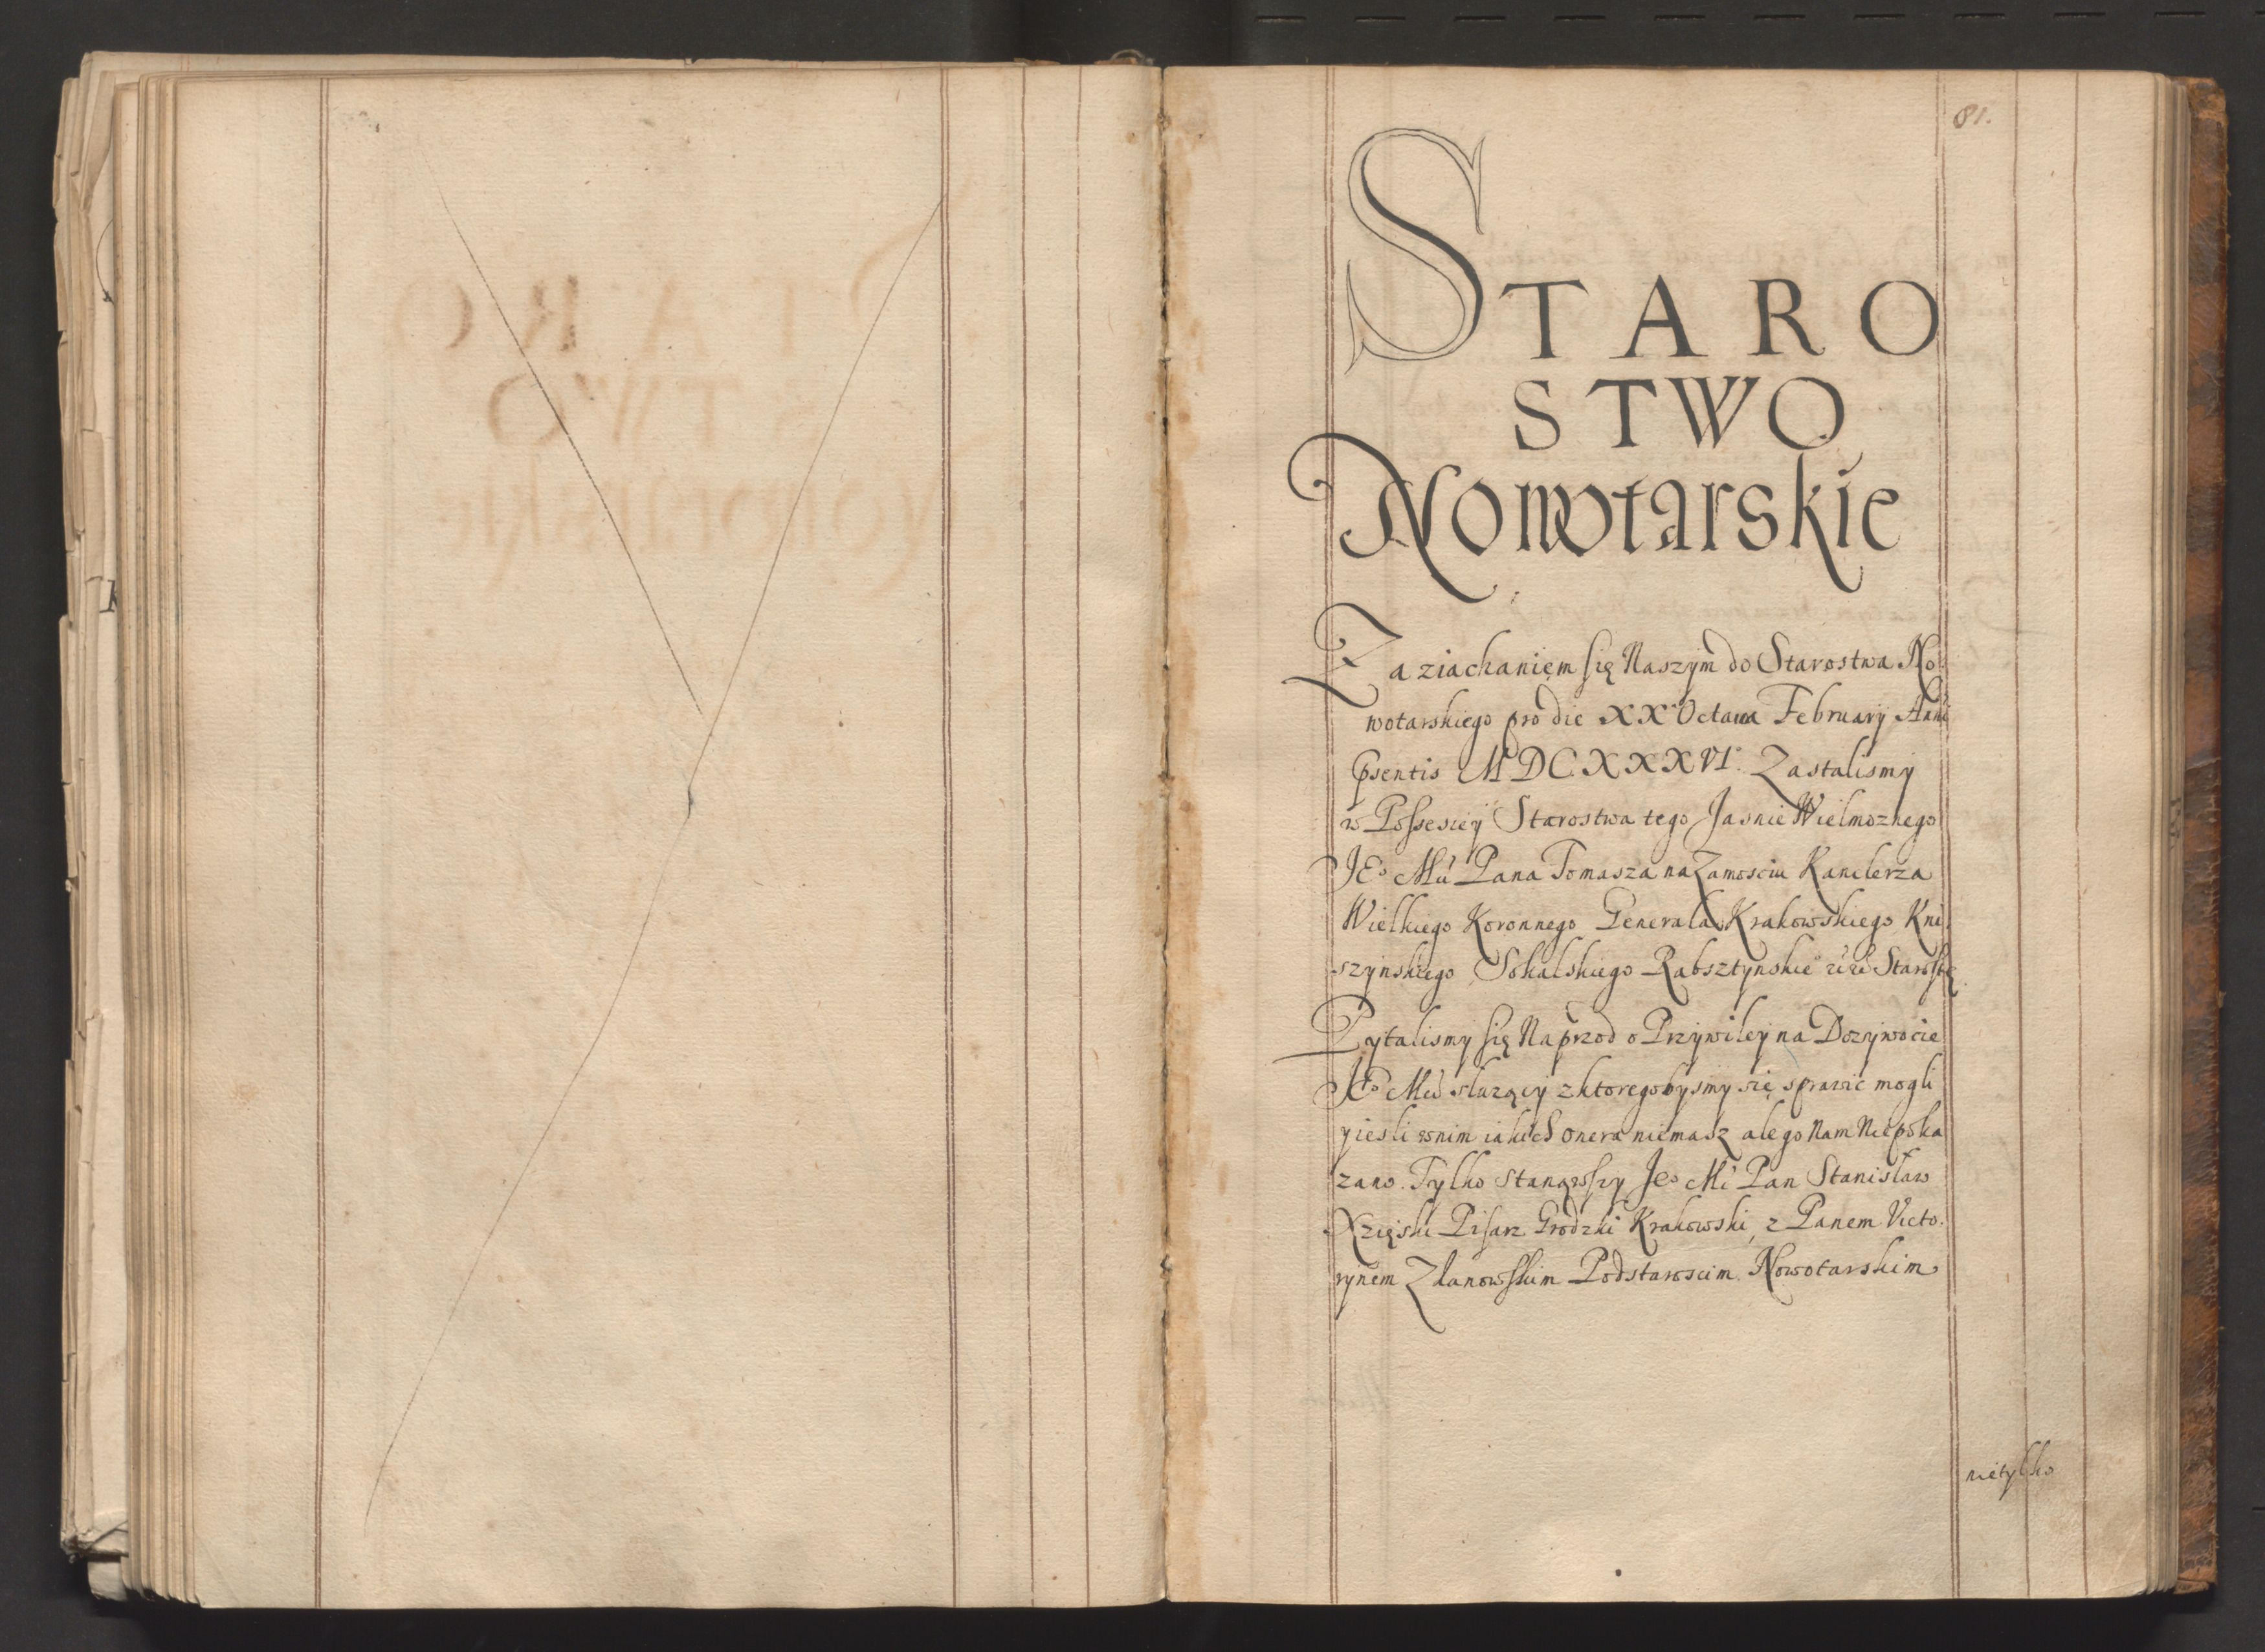 81.
STARO
STWO
Nowotarskie
Za ziachanięm się Naszym do Starostwa No
wotarskiego pro die XX Octava Februarij Anni
psentis MDCXXXVI. Zastalismy
w Possesiey Starostwa tego Jasnie Wielmoznego
JEo Mci Pana Tomasza na Zamosciu Kanclerza
Wielkiego Koronnego Generala Krakowskiego Kni
szynskiego Sokalskiego Rabsztynskieo Starostę
Pytalismy się Naprzod o Przywiley na Dozywocie
JEo Mci sluzący z ktoregobysmy się sprawic mogli
yiesli wnim iakich onera niemasz ale go Nam Niepoka
zano. Tylko stanąwszy Jeo Mc Pan Stanisław
Xzięski Pisarz Grodzki Krakowski, z Panem Victo
rynem Zdanowskim Podstaroscim Nowotarskim
nietylko